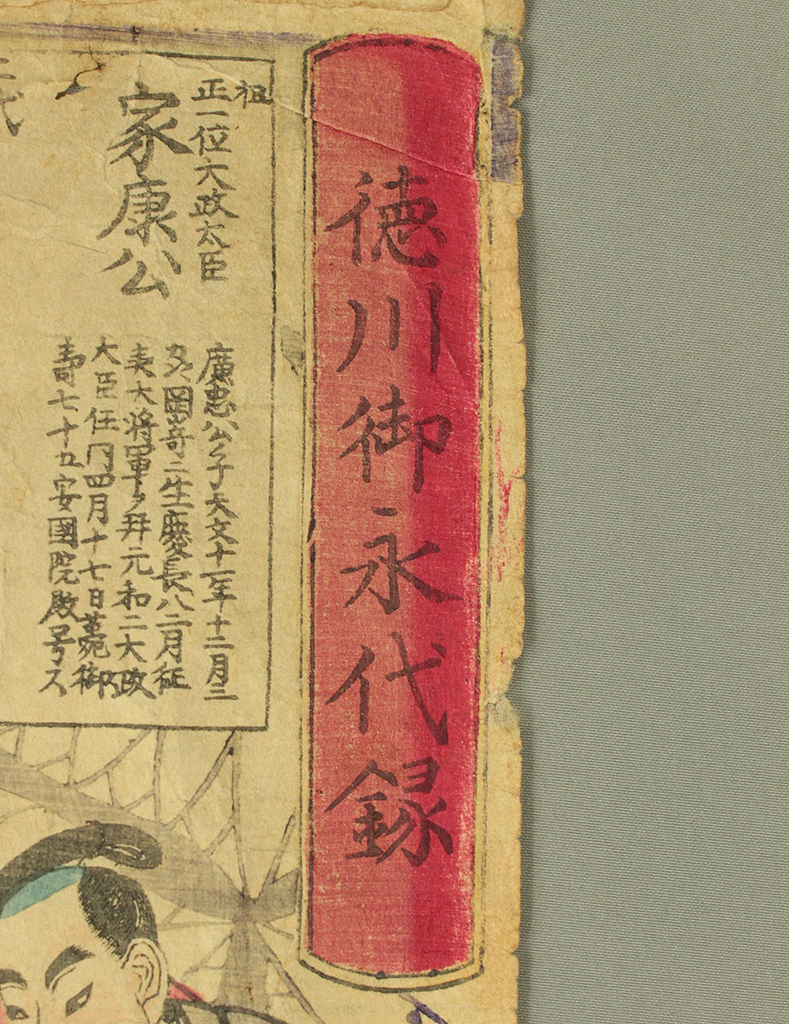 徳川御永代録
祖
正一位大政太臣
家康公
廣忠公ノ子天文十一年十二月二
岡嵜ニ生慶長八二月征
夷大将軍ヲ拜元和二大政
大臣任 四月十七日薨御
壽七十五安國院殿号ス
代